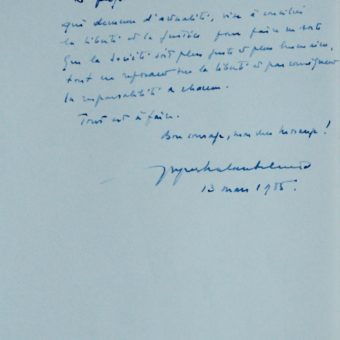 qui demeure d'actualité, vise à concilier
la liberté et la justice pour faire en sorte
que la société soit plus juste et plus humaine,
tout en reposant sur la liberté et par conséquent
la responsabilité de chacun.
Tout est à faire.
Bon courage, mon cher
13 mars 1985.